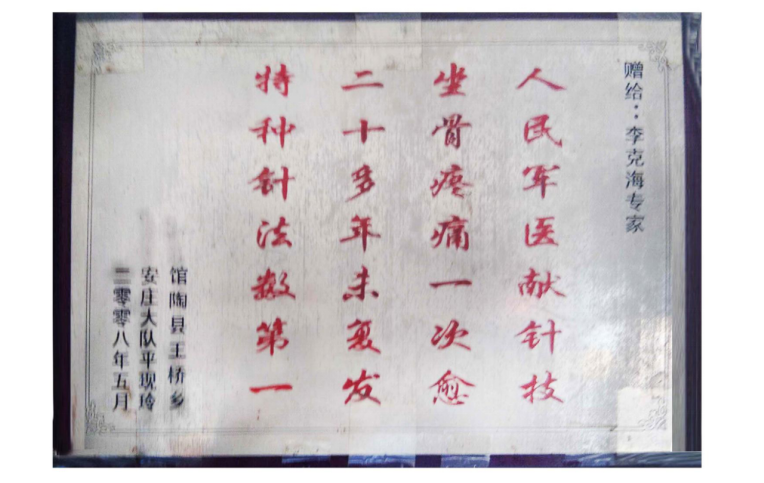 赠给：李克海专家
人民军医献针技
坐骨疼痛一次愈
二十多年未复发
特种针法数第一
馆陶县王桥乡
安庄大队平现玲
二零零八年五月